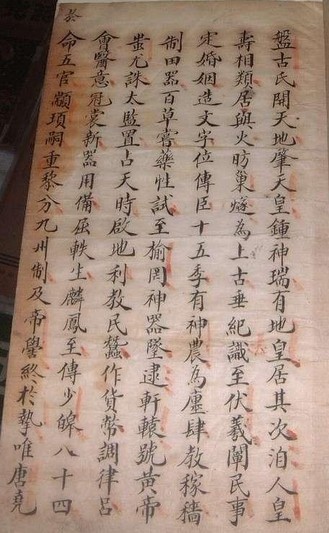 盤古氏開天地肇天皇鍾神瑞有地皇居其次洎人皇
壽相類居與火昉巢燧為上古垂紀識至伏羲闡民事
定婚姻造文字位傳臣十五季有神農為廛肆教稼穡
制田器百草嘗藥性試至榆罔神器墜逮軒轅號黃帝
蚩尤誅太監置占天時啟地利教民蠶作貨幣調律呂
會醫意冠裳新器用備屈軼生麟鳳至傳少皞八十四
命五官顓頊嗣重黎分九州制及帝嚳終於摯唯唐堯
於